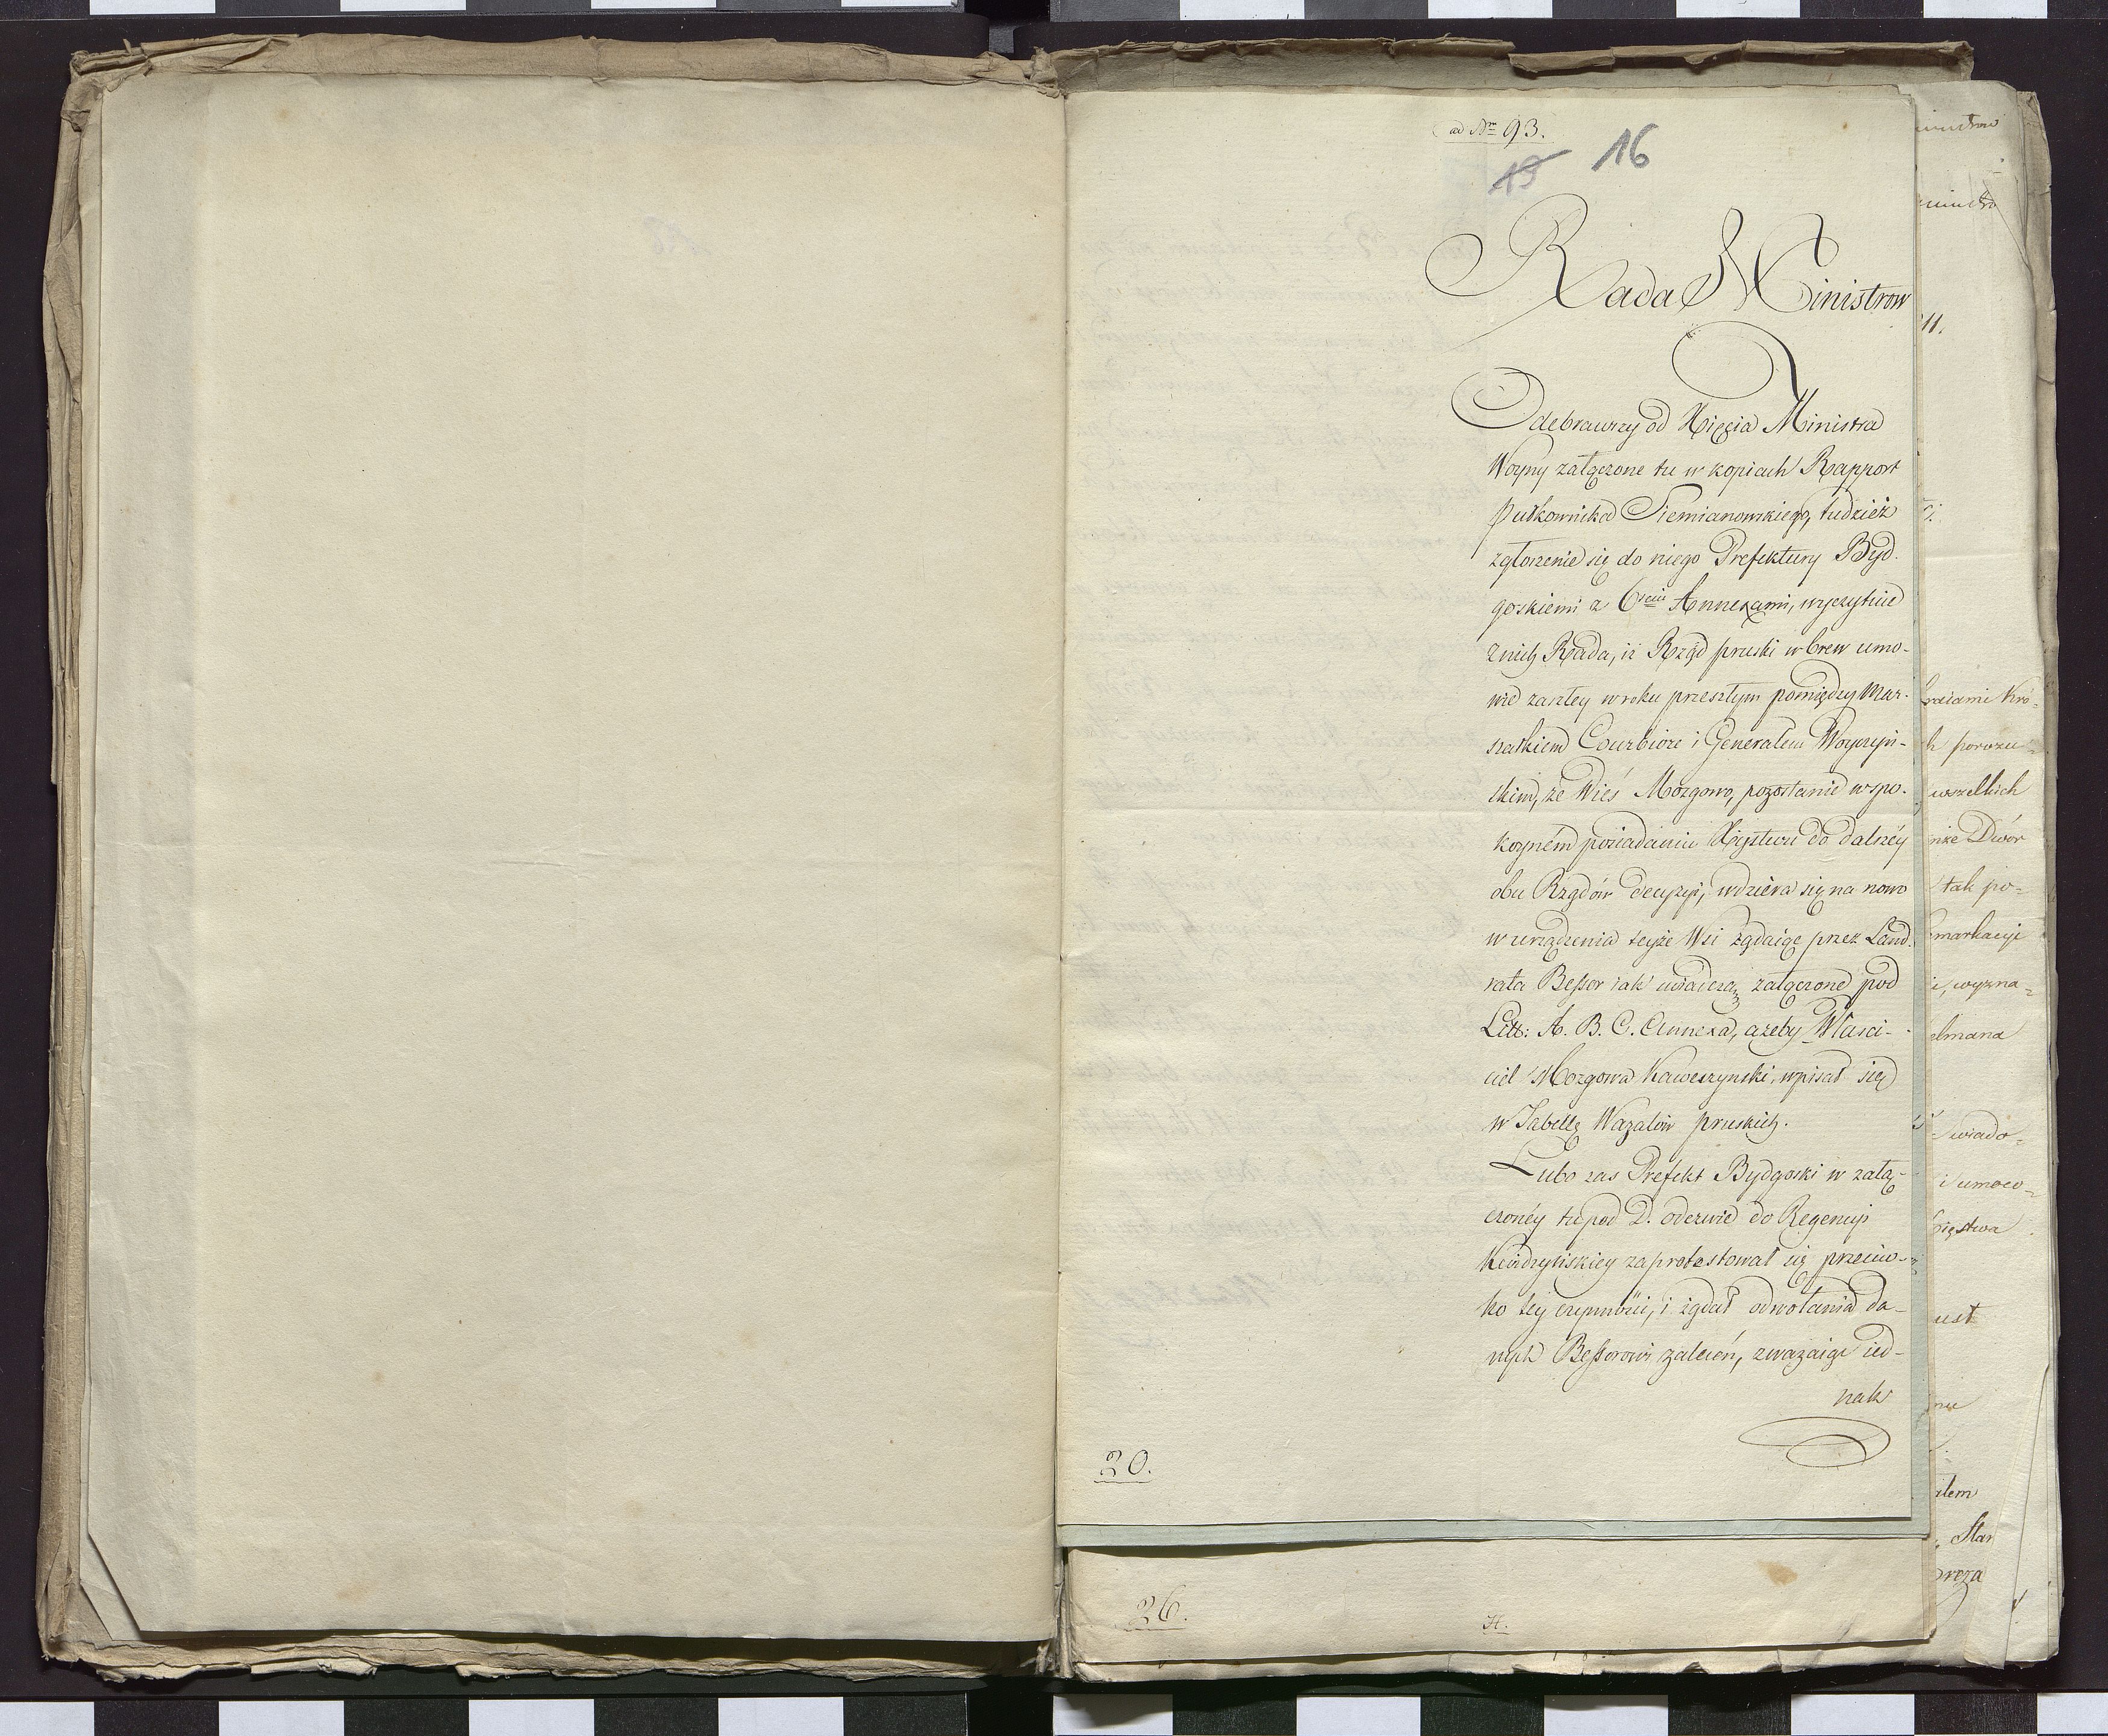 ad Nrm 93.
15 16
Rada Ministrow
Odebrawszy od Xięcia Ministra
Woyny załączone tu w kopiach Rapport
Pułkownika Siemianowskiego, tudzież
zgłoszenie się do niego Prefektury Byd-
goskiemi z 6ciu Annexami, wyczytuie
z nich Rada, iż Rząd pruski wbrew umo-
wie zaszłey w roku przeszłym pomiędzy Mar-
szałkiem Courbiere i Generałem Woyczyń-
skim, że Wieś Mozgowo, pozostanie w spo-
koyném posiadaniu Xięstwa do dalszéy
obu Rządów decyzyi, wdziéra się na nowo
w urządzenia teyże Wsi żądaiąc przez Land-
rata Besser iak uświadczaią załączone pod
Litt: A. B. C. Annexa, ażeby Własci-
ciel Mozgowa Kaweczynski, wpisał się
w Tabellę Wazalów pruskich.
Lubo zas Prefekt Bydgoski w załą-
czonéy tu pod D. odezwie do Regencyi
Kwidzyńskiey zaprotestował się przeciw-
ko tey czynności, i żądał odwołania da-
nych Besserowi zaleceń, zważaiąc ied-
nak
20.
26.
H.
11.
raiami Kró-
h porozu-
wszelkich
nże Dwór
tak po-
markacyi
i, wyzna-
elmana
wiado-
i umoco-
ięstwa
ust
nie
ałem
Star